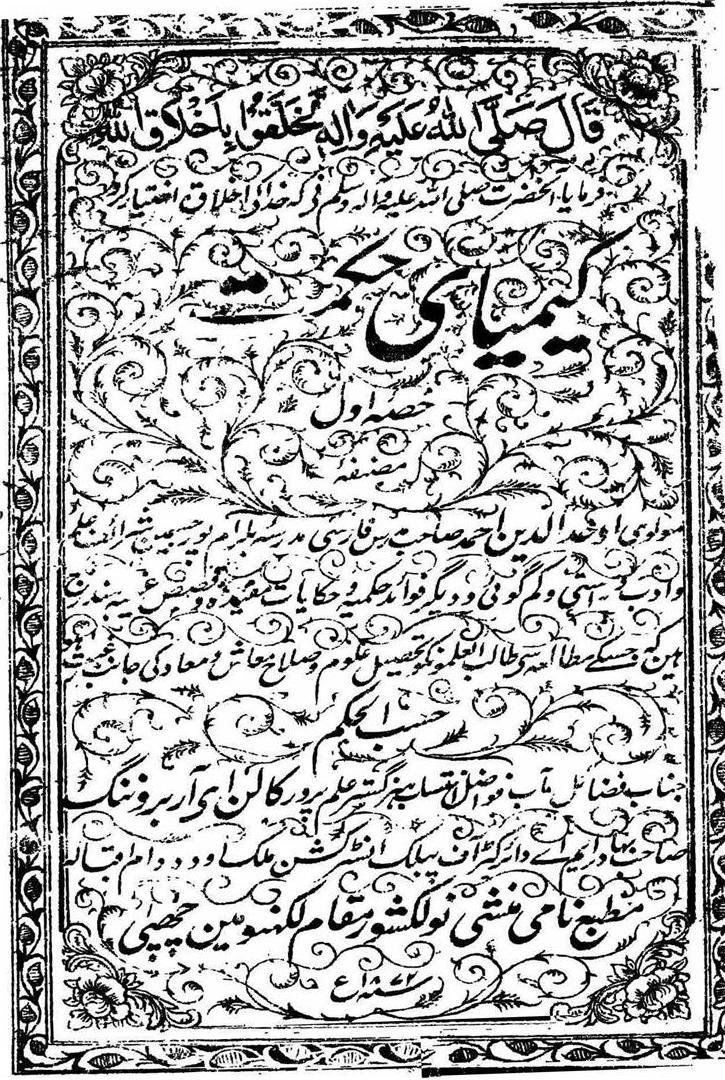 قَالَ صَلَّى اللهُ عَلَيْهِ وَاٰلِهٖ تَخَلَّقُوْا بِاَخْلَاقِ اللهِ
فرمایا آنحضرت صلی اللہ علیہ وآلہ وسلم نی کہ خدا کی اخلاق اختیار کرو
کیمیای حکمت
حصہ اول
مصنفہ
مولوی اوحد الدین احمد صاحب مدرس فارسی مدرسہ بلرام پور جسمین شرافت علم
وادب وراستی وکم گوئی و دیگر فوائد حکمیہ و حکایات مفیدہ وقصص غریبہ مندرج
ہین کہ جسکے مطالعہ سی طالب العلمونکو تحصیل علوم و صلاح معاش ومعاد کی جانب رغبت ہو
حسب الحکم
جناب فضائل مآب فواضل انتساب ہنر گستر علم پرور کالن ای آر برو ننگ
صاحب بہادر ایم اے دائرکٹر آف پبلک انسٹرکشن ملک اودہ دام اقبالہ
مطبع نامی منشی نولکشور مقام لکھنو مین چھپی
سنہ ۱۸۷۲ع